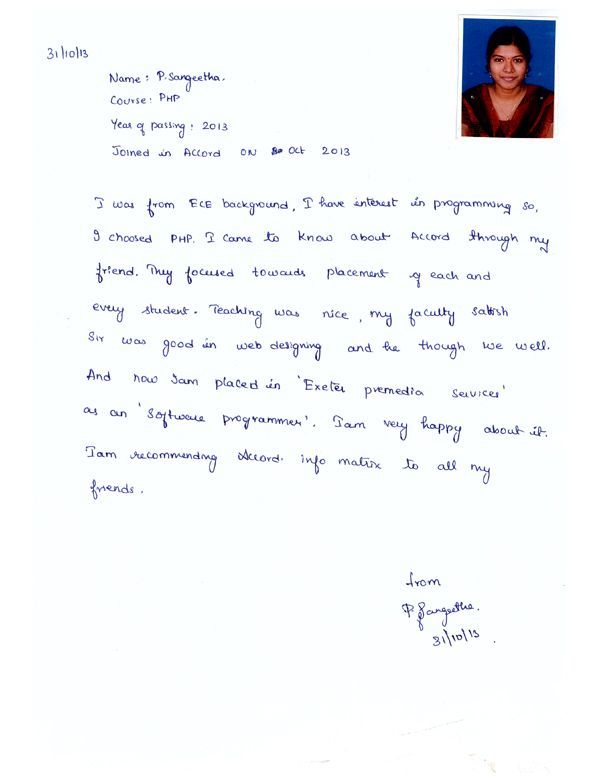 31/10/13
Name : P. Sangeetha.
Course : PHP
Year of passing : 2013
Joined in Accord ON Oct 2013
I was from ECE background, I have interest in programming so,
I choosed PHP. I came to know about Accord through my
friend. They focused towards placement of each and
every student. Teaching was nice, my faculty Satish
Sir was good in web designing and he though we well.
And now Iam placed in 'Exeter premedia services'
as an 'Software programmer'. Iam very happy about it.
Iam recommending Accord. info matrix to all my
friends.
from
P Sangeetha.
31/10/13.